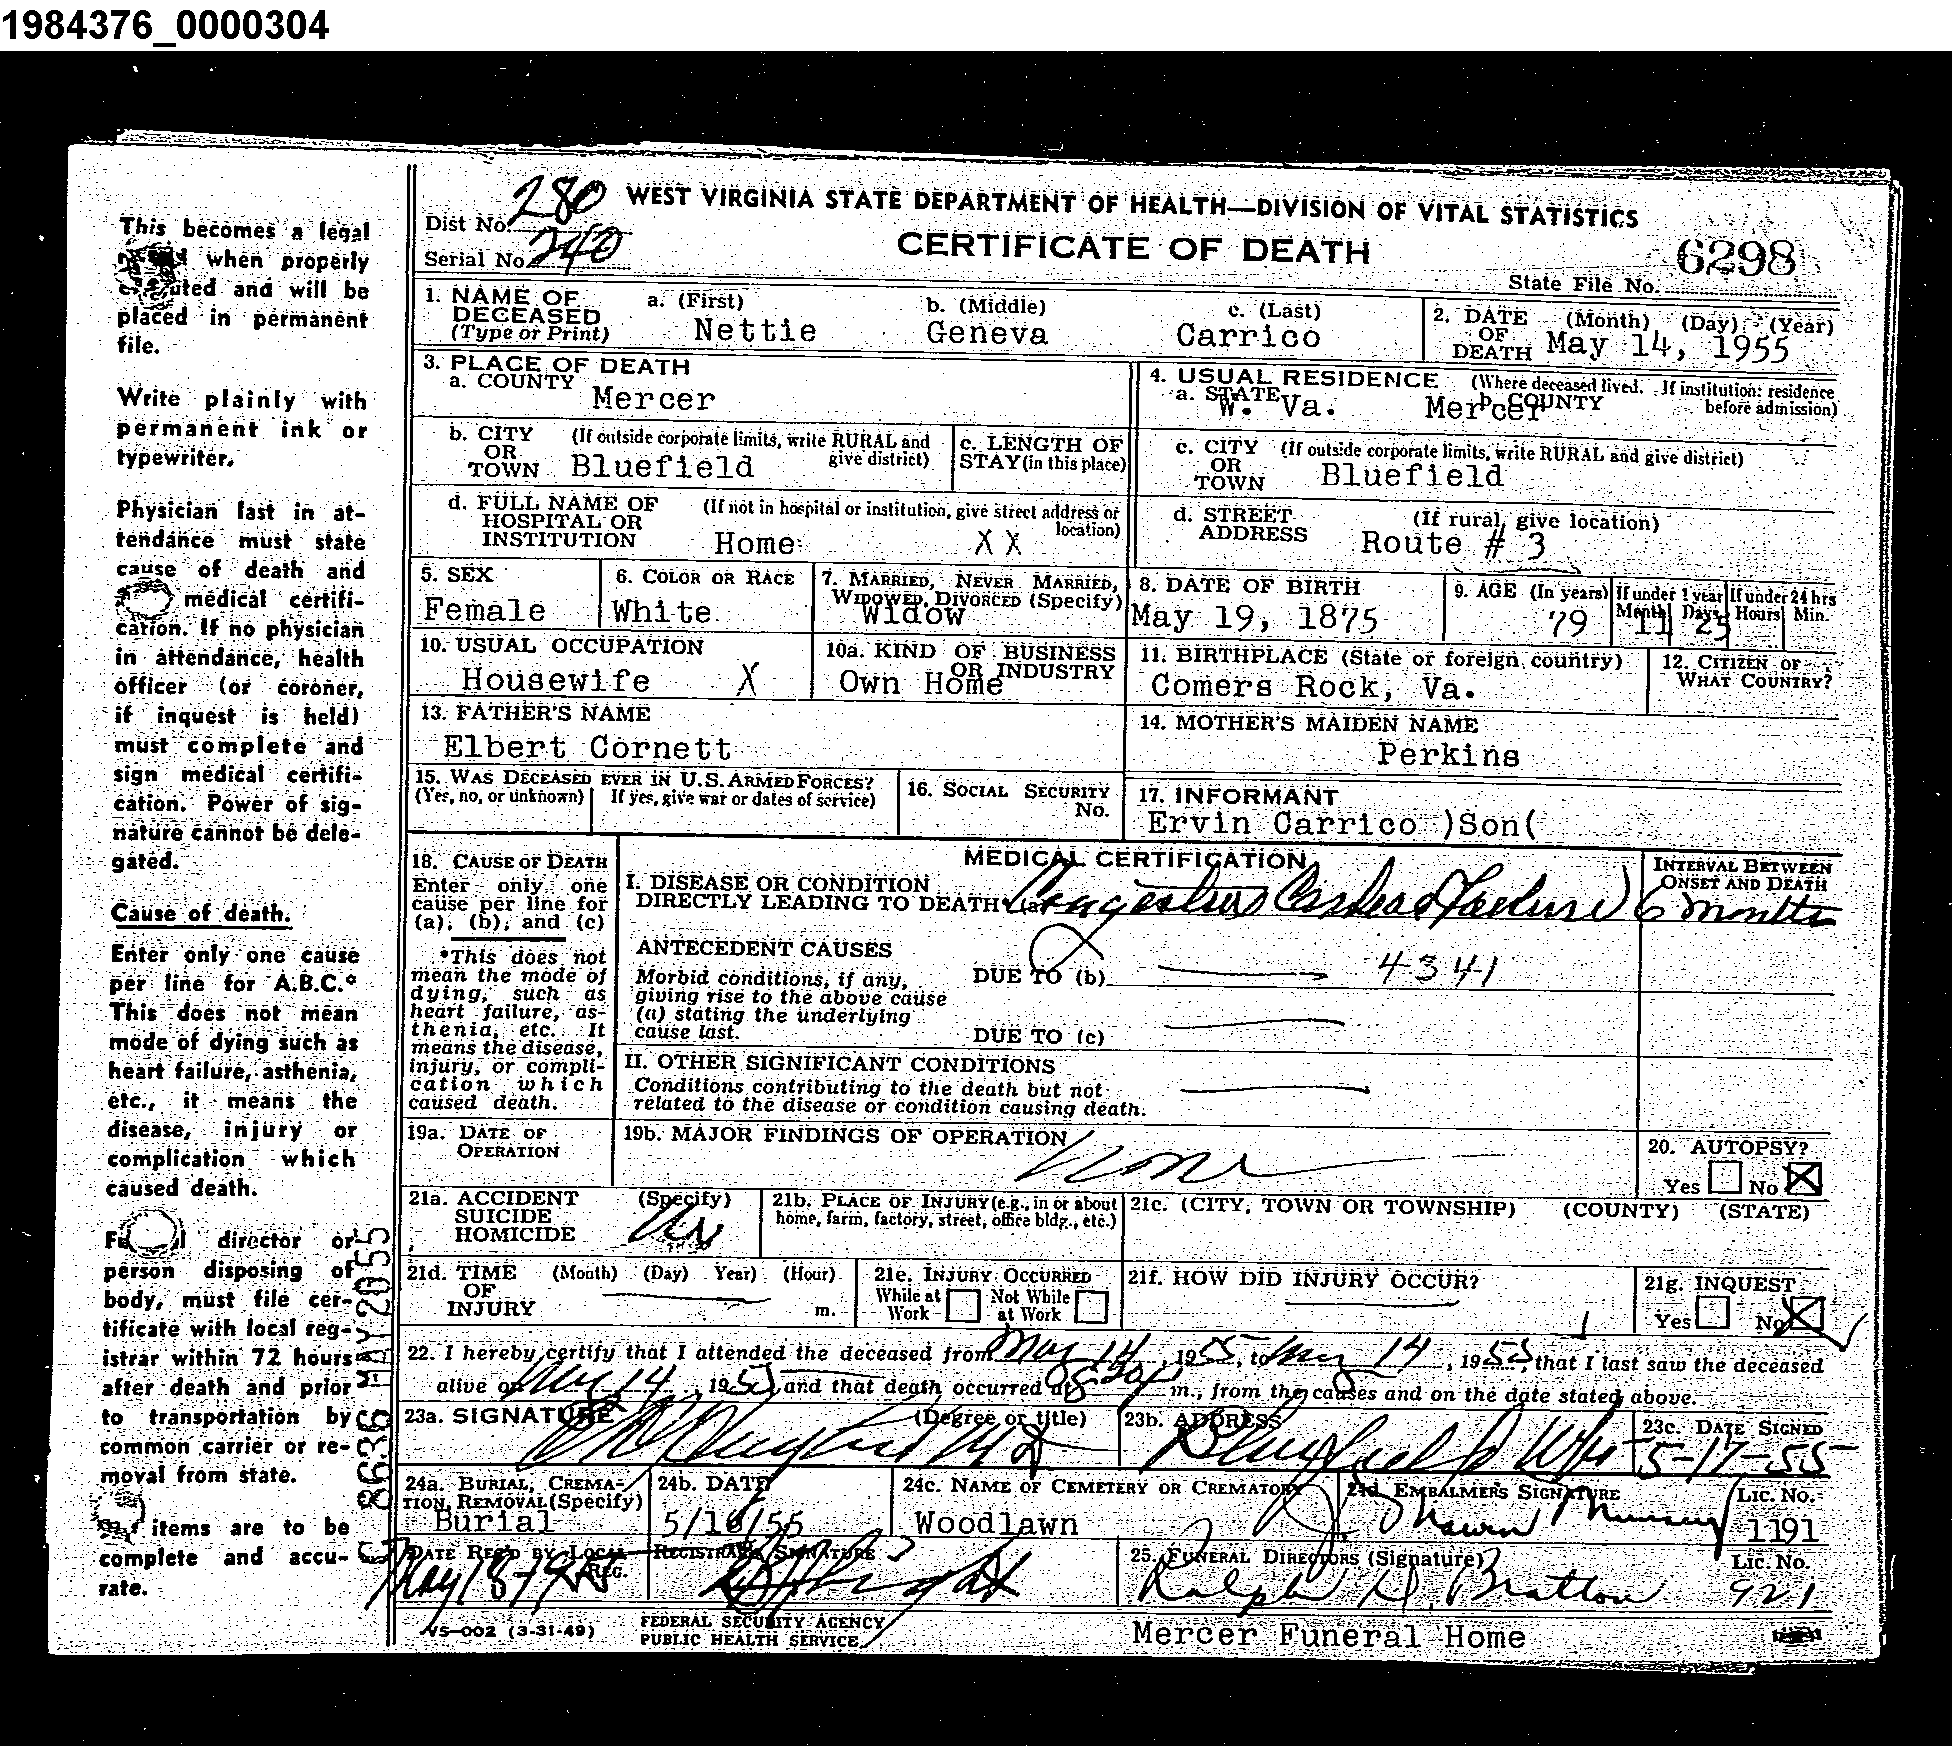 1984376_0000304
This becomes a legal
when properly
and will be
placed in permanent
file.
Write plainly with
permanent ink or
typewriter.
Physician last in at-
tendance must state
cause of death and
medical certifi-
cation. If no physician
in attendance, health
officer (or coroner,
if inquest is held)
must complete and
sign medical certifi-
cation. Power of sig-
nature cannot be dele-
gated.
Cause of death.
Enter only one cause
per line for A.B.C.*
This does not mean
mode of dying such as
heart failure, asthenia,
etc., it means the
disease, injury or
complication which
caused death.
director or
person disposing of
body, must file cer-
tificate with local reg-
istrar within 72 hours
after death and prior
to transportation by
common carrier or re-
moval from state.
items are to be
complete and accu-
rate.
WEST VIRGINIA STATE DEPARTMENT OF HEALTH—DIVISION OF VITAL STATISTICS
CERTIFICATE OF DEATH
Dist No. 280
Serial No. 240
State File No. 6298
1. NAME OF DECEASED (Type or Print) a. (First) Nettie b. (Middle) Geneva c. (Last) Carrico
2. DATE OF DEATH (Month) (Day) (Year) May 14, 1955
3. PLACE OF DEATH
a. COUNTY Mercer
4. USUAL RESIDENCE (Where deceased lived. If institution: residence before admission)
a. STATE W. Va. b. COUNTY Mercer
b. CITY OR TOWN (If outside corporate limits, write RURAL and give district) Bluefield
c. LENGTH OF STAY (in this place)
c. CITY OR TOWN (If outside corporate limits, write RURAL and give district) Bluefield
d. FULL NAME OF HOSPITAL OR INSTITUTION (If not in hospital or institution, give street address or location) Home XX
d. STREET ADDRESS (If rural, give location) Route # 3
5. SEX Female
6. COLOR OR RACE White
7. MARRIED, NEVER MARRIED, WIDOWED, DIVORCED (Specify) Widow
8. DATE OF BIRTH May 19, 1875
9. AGE (In years) 79 If under 1 year Months 11 Days 25 If under 24 hrs Hours Min.
10. USUAL OCCUPATION Housewife X
10a. KIND OF BUSINESS OR INDUSTRY Own Home
11. BIRTHPLACE (State or foreign country) Comers Rock, Va.
12. CITIZEN OF WHAT COUNTRY?
13. FATHER'S NAME Elbert Cornett
14. MOTHER'S MAIDEN NAME Perkins
15. WAS DECEASED EVER IN U.S. ARMED FORCES? (Yes, no, or unknown) If yes, give war or dates of service)
16. SOCIAL SECURITY No.
17. INFORMANT Ervin Carrico )Son(
18. CAUSE OF DEATH
Enter only one
cause per line for
(a), (b), and (c)
*This does not
mean the mode of
dying, such as
heart failure, as-
thenia, etc. It
means the disease,
injury, or compli-
cation which
caused death.
MEDICAL CERTIFICATION
INTERVAL BETWEEN ONSET AND DEATH
I. DISEASE OR CONDITION
DIRECTLY LEADING TO DEATH* (a) Congestive Cardiac Failure 6 months
ANTECEDENT CAUSES
Morbid conditions, if any,
giving rise to the above cause
(a) stating the underlying
cause last.
DUE TO (b) 4341
DUE TO (c)
II. OTHER SIGNIFICANT CONDITIONS
Conditions contributing to the death but not
related to the disease or condition causing death.
19a. DATE OF OPERATION
19b. MAJOR FINDINGS OF OPERATION none
20. AUTOPSY?
Yes No X
21a. ACCIDENT SUICIDE HOMICIDE (Specify)
21b. PLACE OF INJURY (e.g., in or about home, farm, factory, street, office bldg., etc.)
21c. (CITY, TOWN OR TOWNSHIP) (COUNTY) (STATE)
21d. TIME OF INJURY (Month) (Day) Year) (Hour) m.
21e. INJURY OCCURRED While at Work Not While at Work
21f. HOW DID INJURY OCCUR?
21g. INQUEST
Yes No X
22. I hereby certify that I attended the deceased from May 14, 1955, to May 14, 1955 that I last saw the deceased
alive on May 14, 1955, and that death occurred at m., from the causes and on the date stated above.
23a. SIGNATURE (Degree or title) MD
23b. ADDRESS Bluefield W Va
23c. DATE SIGNED 5-17-55
24a. BURIAL, CREMA-
TION, REMOVAL (Specify) Burial
24b. DATE 5/16/55
24c. NAME OF CEMETERY OR CREMATORY Woodlawn
24d. EMBALMERS SIGNATURE LIC. NO. 1191
DATE REC'D BY LOCAL REG. May 18-1955
REGISTRAR'S SIGNATURE
25. FUNERAL DIRECTORS (Signature) Ralph D. Bratton Lic. No. 921
VS-002 (3-31-49)
FEDERAL SECURITY AGENCY
PUBLIC HEALTH SERVICE
Mercer Funeral Home